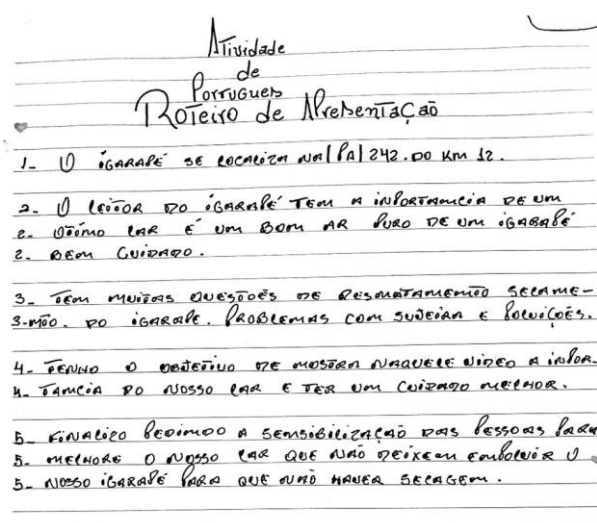 Atividade
de
Portugues
Roteiro de Apresentação
1- O iGARAPÉ SE LOCALIZA NA|PA|242. DO KM 12.
2. O LEITOR DO iGARAPÉ TEM A INPORTAMCIA DE UM
2. OTIMO LAR É UM BOM AR PURO DE UM iGARAPÉ
2. BEM CUIDADO.
3- TEM MUITAS QUESTÕES DE DESMATAMENTO SECAME-
3-MTO. DO iGARAPE. PROBLEMAS COM SUJEIRA E POLUIÇÕES.
4- TENHO O OBJETIVO DE MOSTRA NAQUELE VIDEO A INPOR-
4- TAMCIA DO NOSSO LAR E TER UM CUIDADO MELHOR.
5- FINALIZO PEDIMDO A SEMSIBILIZAÇÃO DAS PESSOAS PARA
5- MELHORE O NOSSO LAR QUE NÃO DEIXEM EMPOLUIR O
5- NOSSO iGARAPÉ PARA QUE NÃO HAVER SECAGEM.